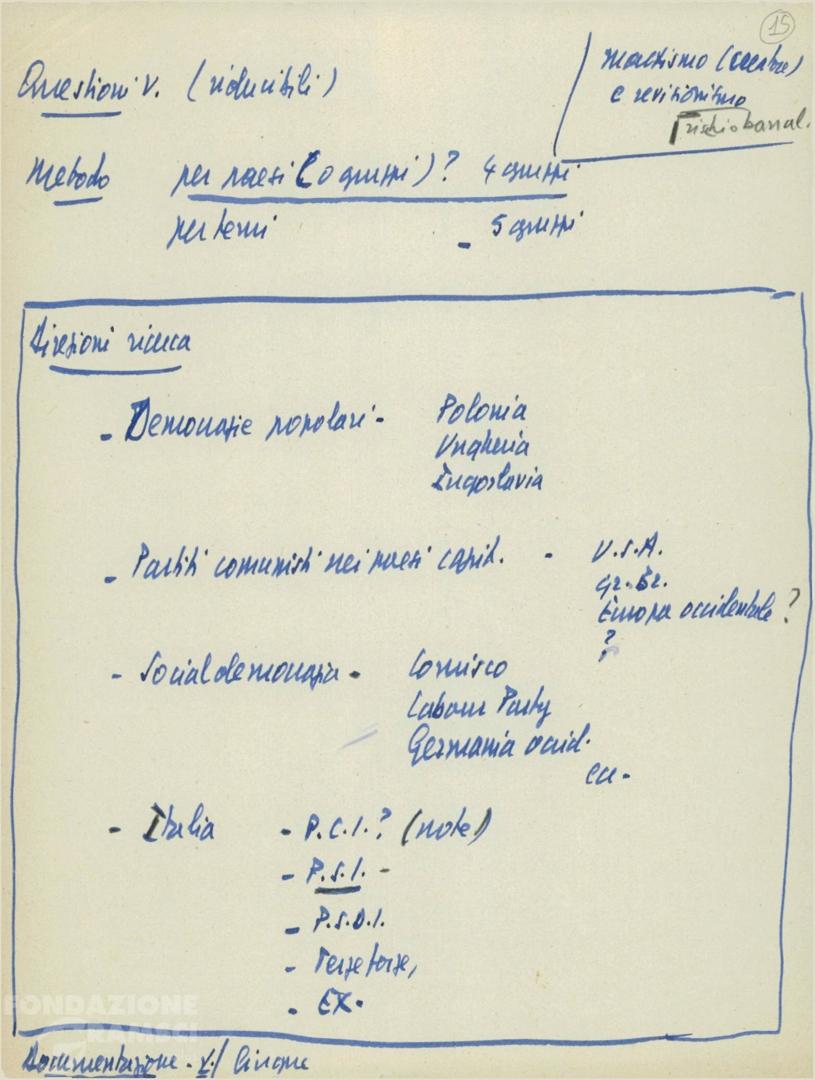 15
Questioni v. (riducibili)
marxismo (creatore)
e revisionismo
rischio banal.
Metodo per paesi (o gruppi)? 4 gruppi
per temi - 5 gruppi
Direzioni ricerca
- Democrazie popolari - Polonia
Ungheria
Iugoslavia
- Partiti comunisti nei paesi capit. - U.S.A.
Gr. Br.
Europa occidentale ?
?
- Socialdemocrazia - Comisco
Labour Party
Germania occid.
ecc.
- Italia - P.C.I. ? (note)
- P.S.I. -
- P.S.D.I.
- Terze forze,
- EX.
Documentazione - v./
FONDAZIONE
GRAMSCI